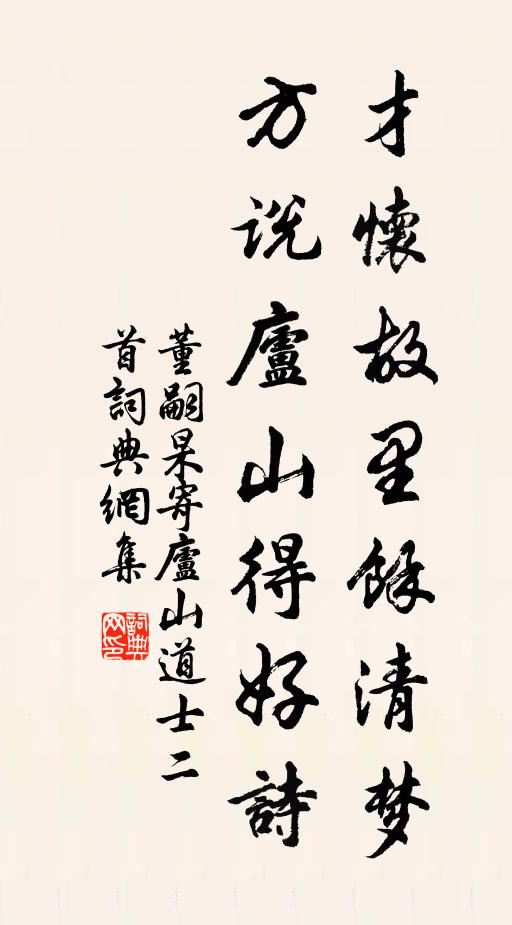 才懷故里餘清梦
方说廬山得好詩
董嗣杲寄廬山道士二
首詞典網集
詞典网印